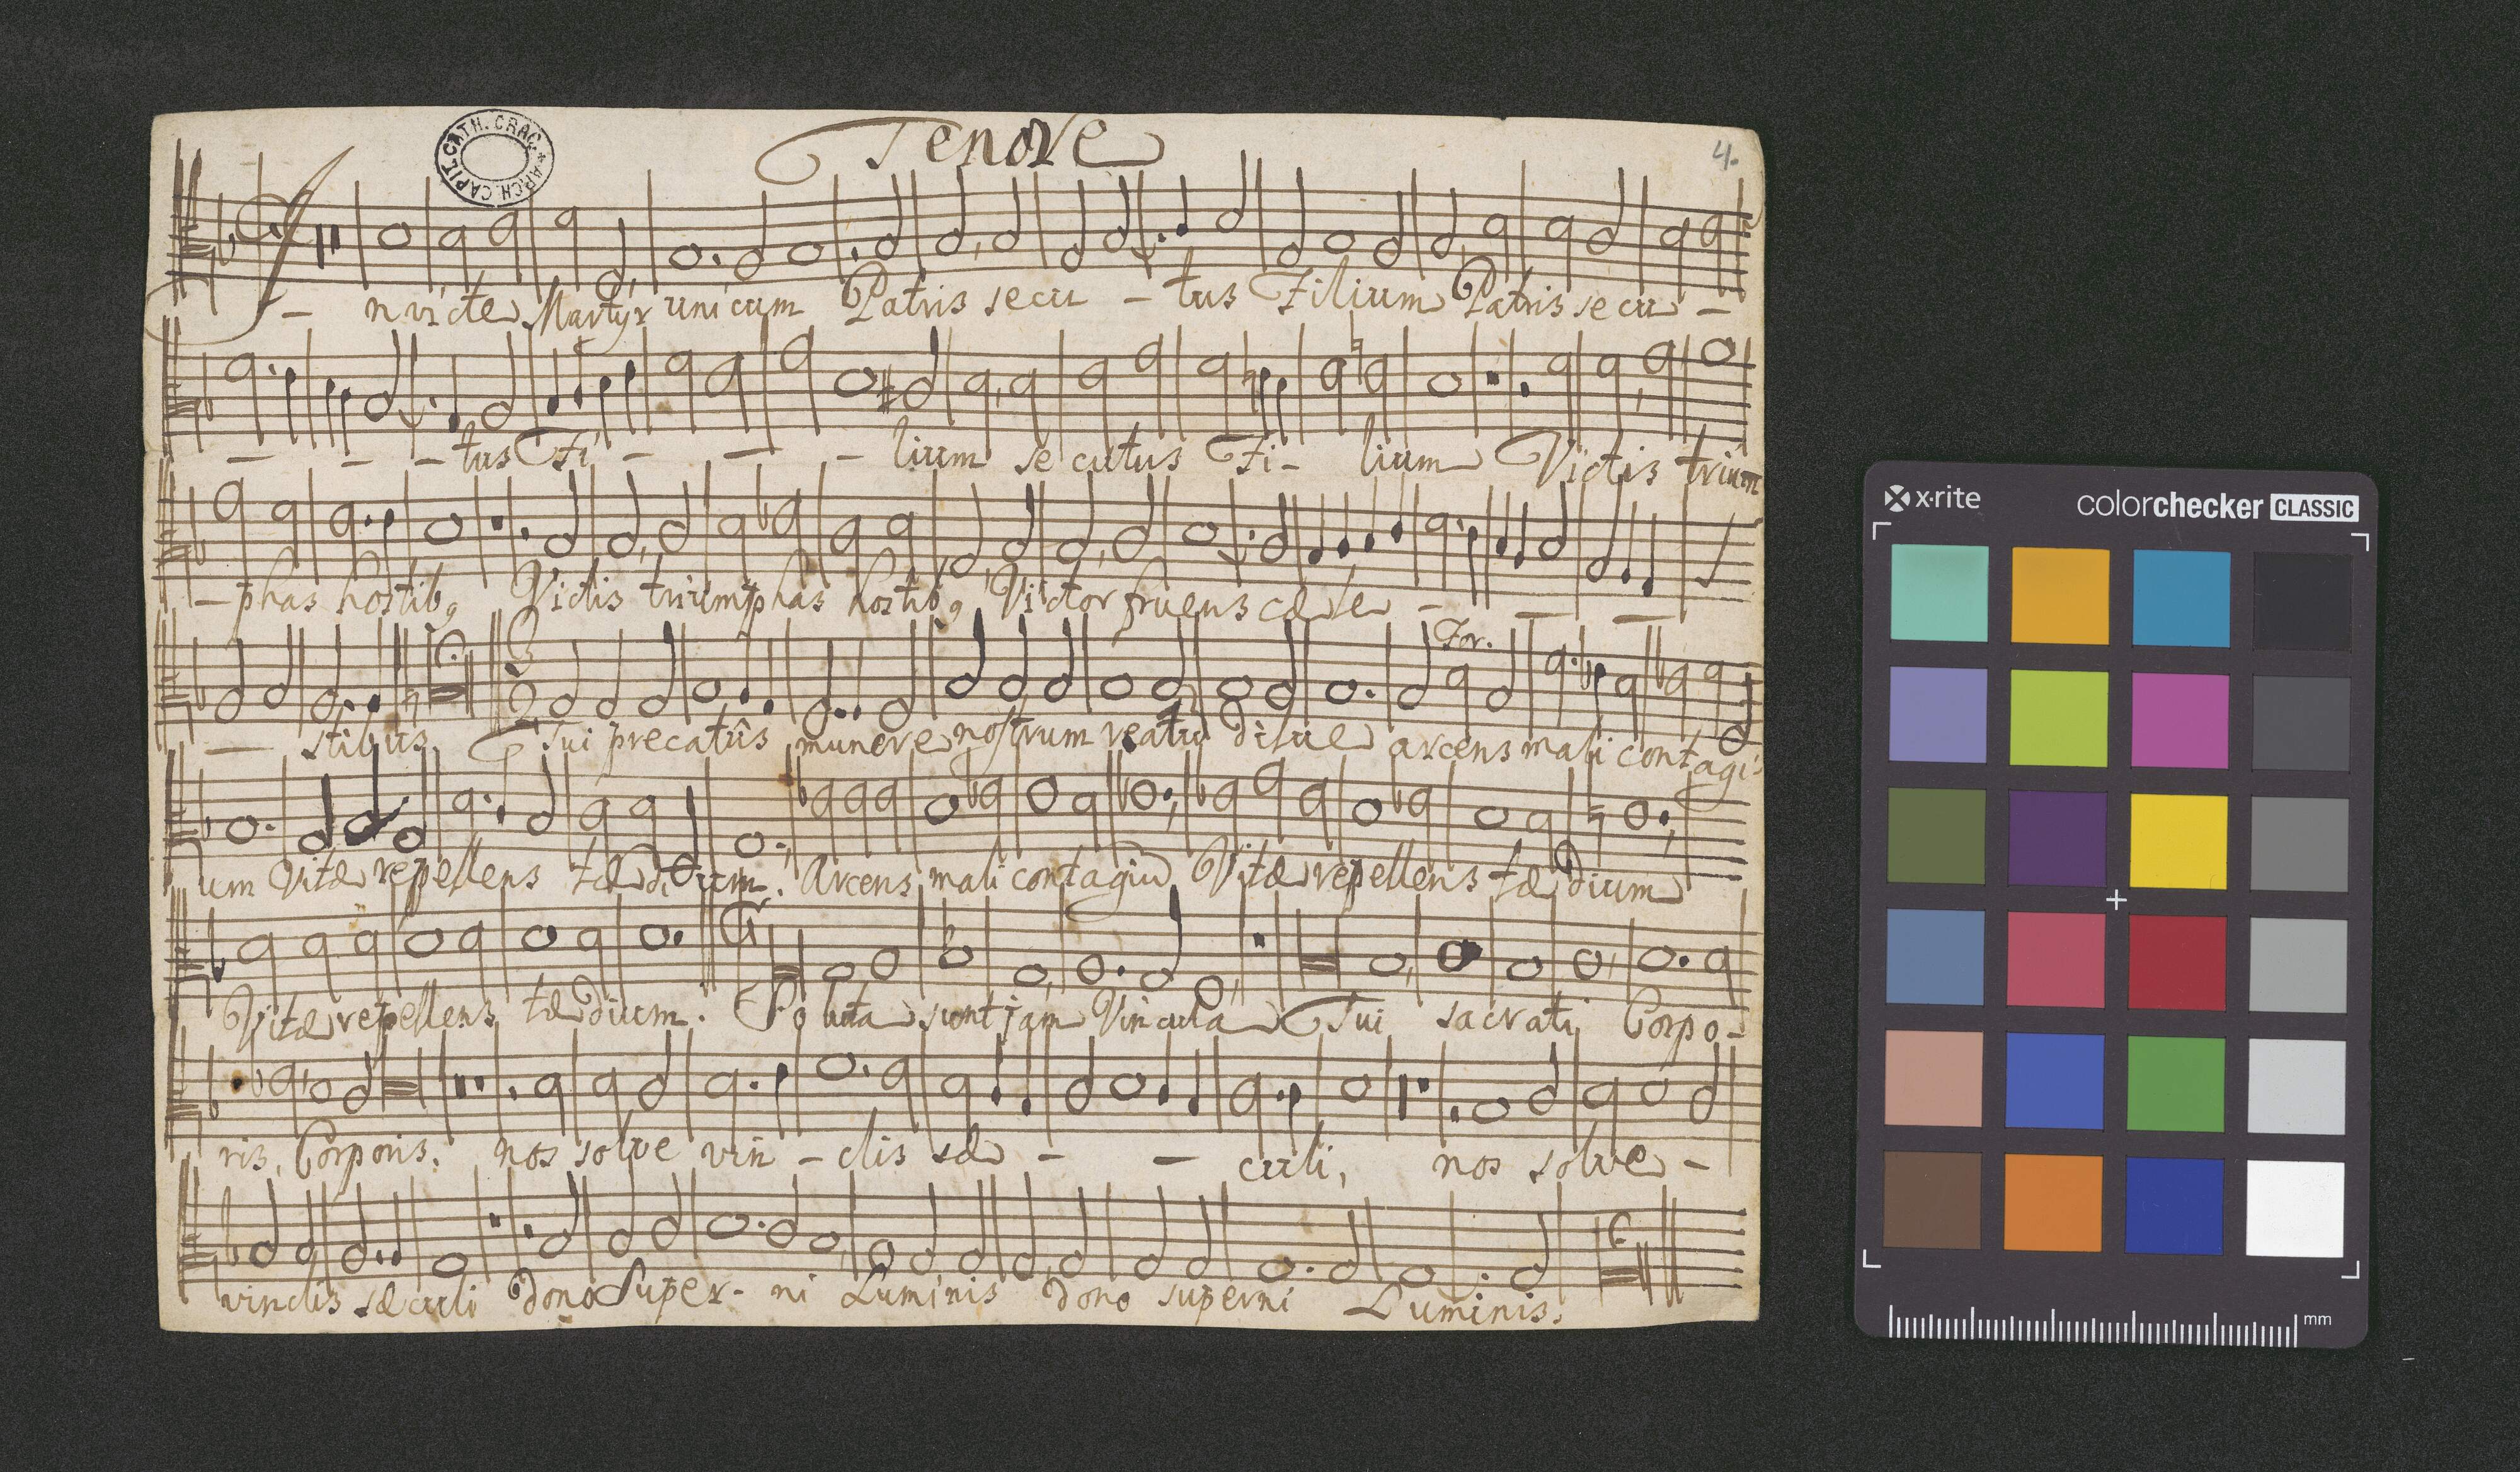 Tenore
4.
ARCH. CAPIT. CATH. CRAC.
Invicte Martyr unicum Patris secu - tus Filium Patris secu -
- - - tus Fi - - - lium secutus Fi - lium Victis trium
- phas hostibꝫ Victis triumphas hostibꝫ Victor fruens cæle - - -
For.
- stibus. Tui precatûs munere nostrum reatū dilue arcens mali contagi
um Vitæ repellens tædium. Arcens mali contagiū Vitæ repellens tædium
Vitæ repellens tædium. Soluta sunt jam Vincula Tui sacrati Corpo -
ris, Corporis, nos solve vin - clis sæ - - culi, nos solve -
vinclis sæculi dono Super - ni Luminis dono superni Luminis.
x·rite
colorchecker CLASSIC
mm